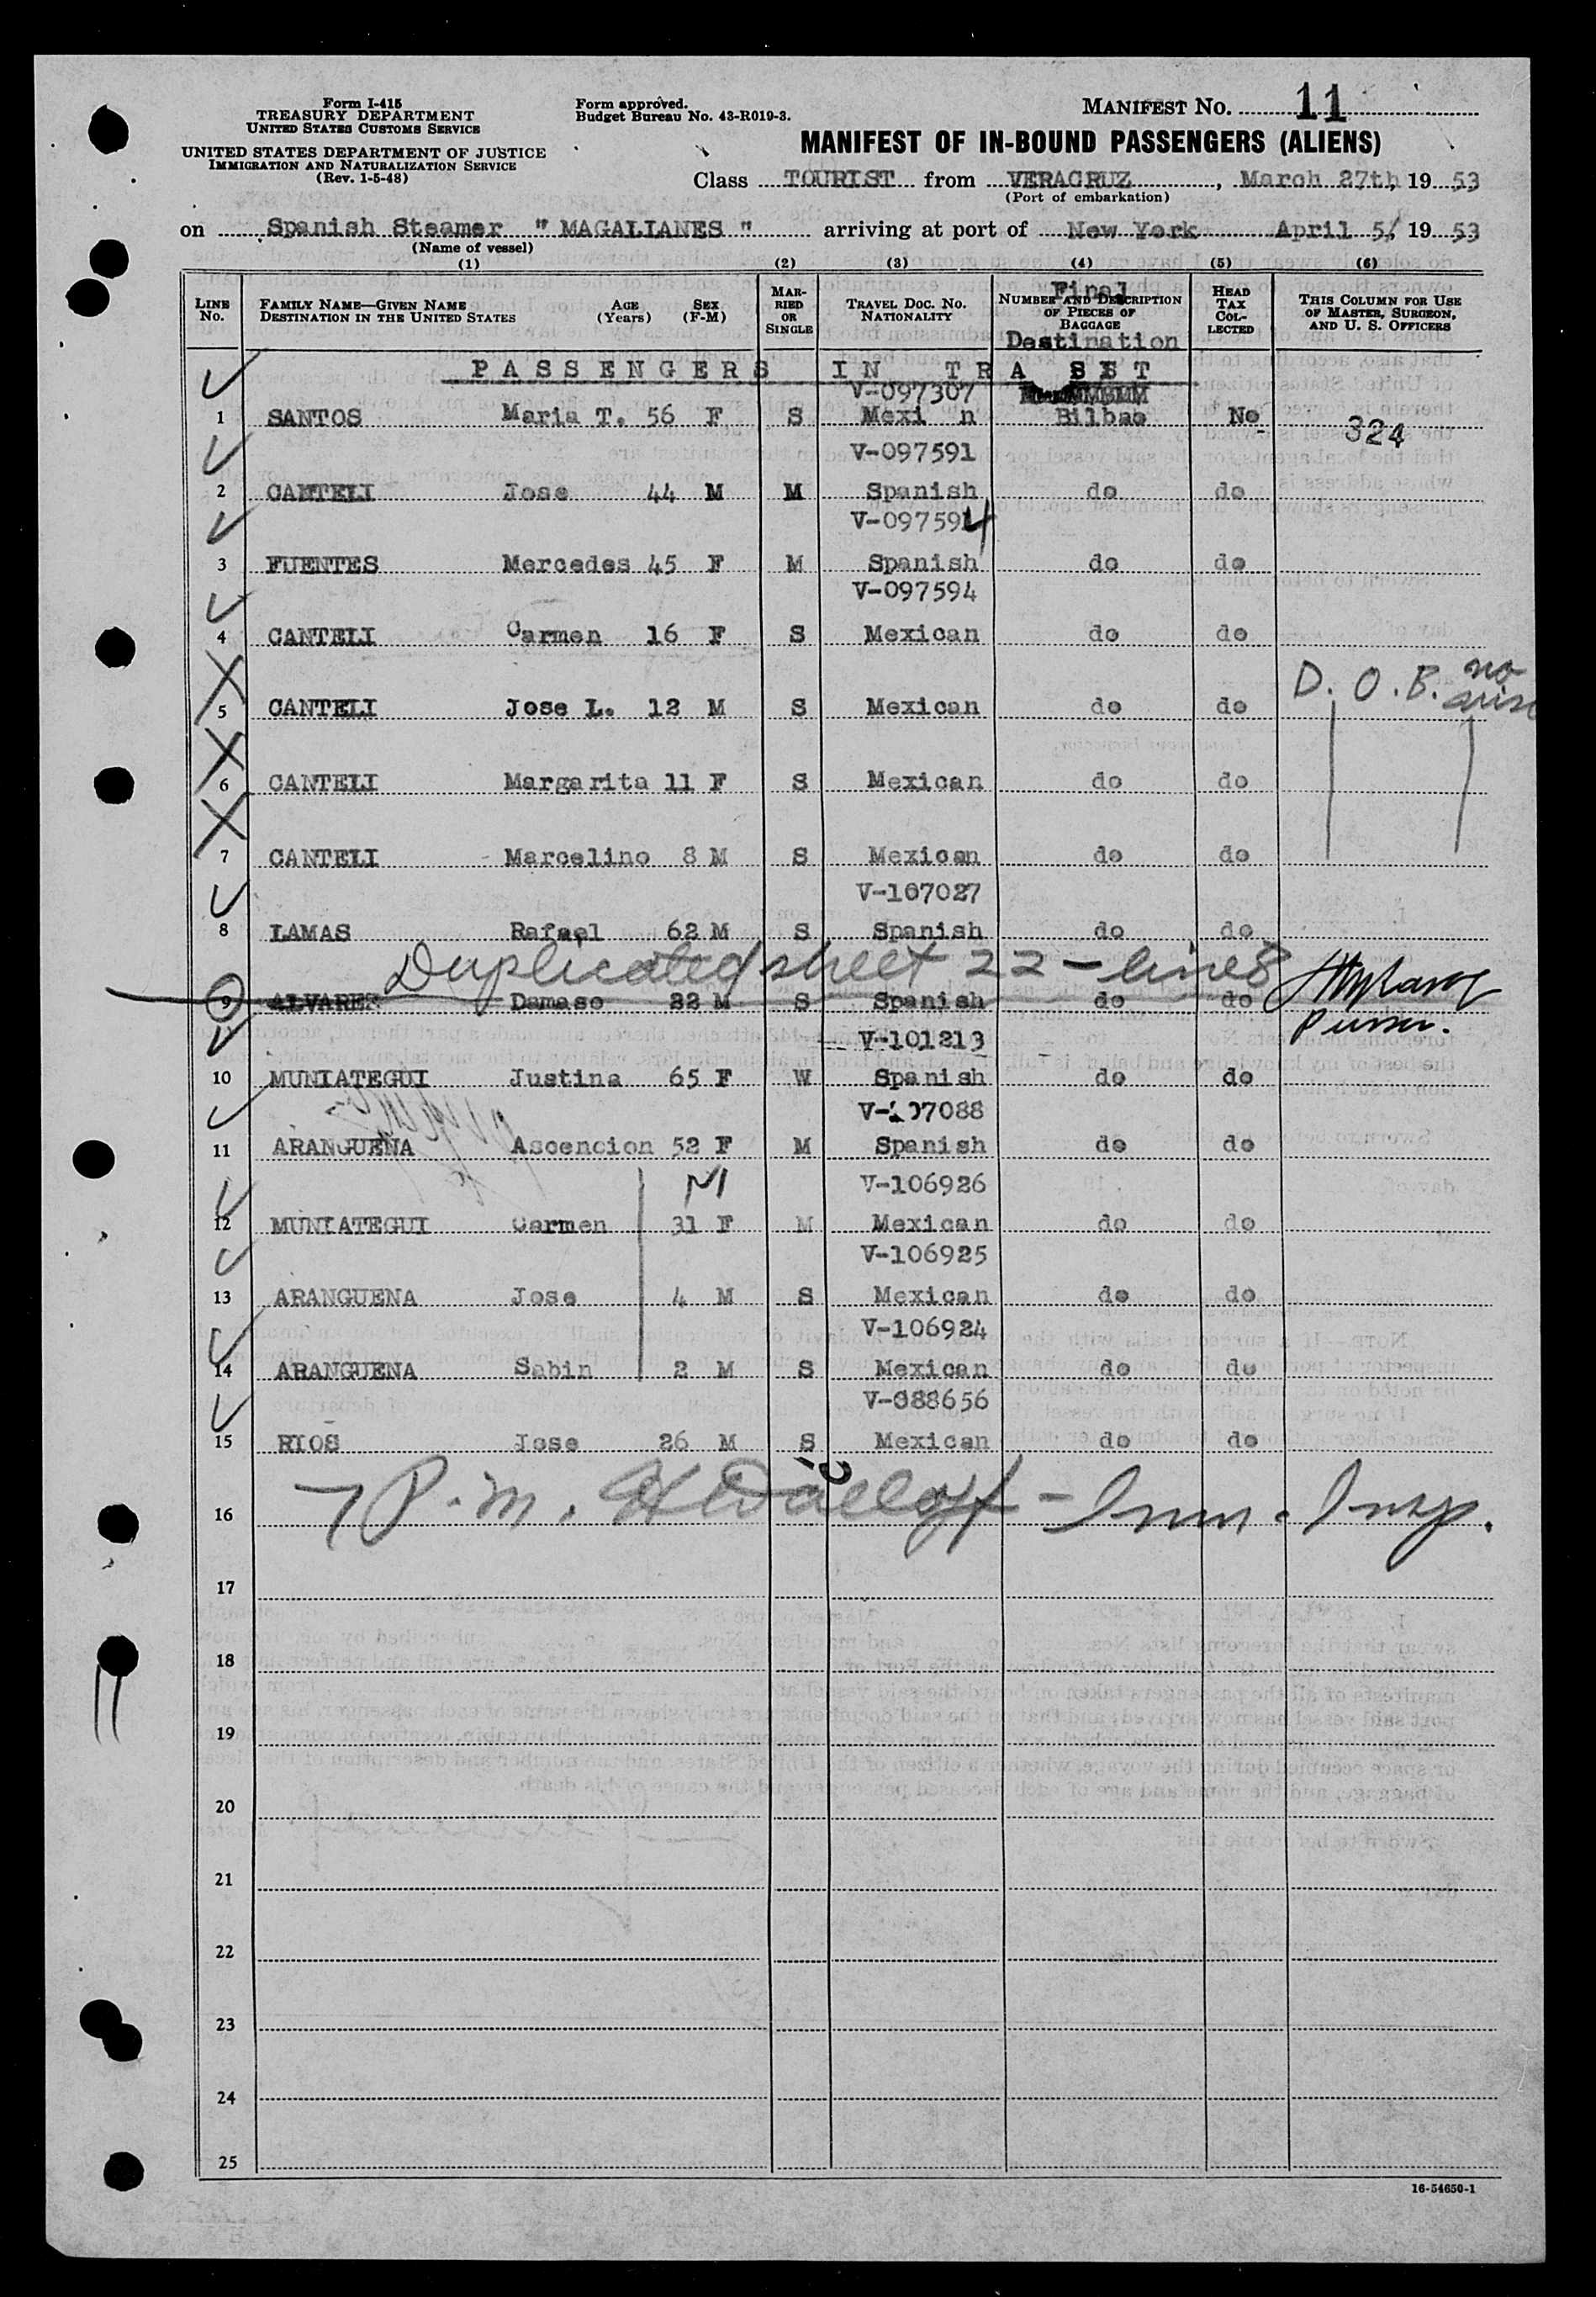 Form I-415
TREASURY DEPARTMENT
UNITED STATES CUSTOMS SERVICE
UNITED STATES DEPARTMENT OF JUSTICE
IMMIGRATION AND NATURALIZATION SERVICE
(Rev. 1-5-48)
Form approved.
Budget Bureau No. 43-R019-3.
MANIFEST No. 11
MANIFEST OF IN-BOUND PASSENGERS (ALIENS)
Class TOURIST from VERACRUZ, March 27th, 19 53
(Port of embarkation)
on Spanish Steamer "MAGALLANES" arriving at port of New York April 5/ 19 53
(Name of vessel)
(1) (2) (3) (4) (5) (6)
LINE No. FAMILY NAME—GIVEN NAME DESTINATION IN THE UNITED STATES AGE (Years) SEX (F-M) MARRIED OR SINGLE TRAVEL DOC. No. NATIONALITY NUMBER AND DESCRIPTION OF PIECES OF BAGGAGE HEAD TAX COLLECTED THIS COLUMN FOR USE OF MASTER, SURGEON, AND U. S. OFFICERS
Final Destination
PASSENGERS IN TRA SIT
V-097307
1 SANTOS Maria T. 56 F S Mexi n Bilbao No 324
V-097591
2 CANTELI Jose 44 M M Spanish do do
V-097594
3 FUENTES Mercedes 45 F M Spanish do do
V-097594
4 CANTELI Carmen 16 F S Mexican do do
D. O. B. no
5 CANTELI Jose L. 12 M S Mexican do do
6 CANTELI Margarita 11 F S Mexican do do
7 CANTELI Marcelino 8 M S Mexican do do
V-107027
8 LAMAS Rafael 62 M S Spanish do do
Duplicated sheet 22 - line 8
9 ALVAREZ Damaso 22 M S Spanish do do
Purser.
V-101213
10 MUNIATEGUI Justina 65 F W Spanish do do
V-107088
11 ARANGUENA Ascencion 52 F M Spanish do do
M V-106926
12 MUNIATEGUI Carmen 31 F M Mexican do do
V-106925
13 ARANGUENA Jose 4 M S Mexican do do
V-106924
14 ARANGUENA Sabin 2 M S Mexican do do
V-088656
15 RIOS Jose 26 M S Mexican do do
7 P.m. - Imm. Insp.
16
17
18
19
20
21
22
23
24
25
16-54650-1